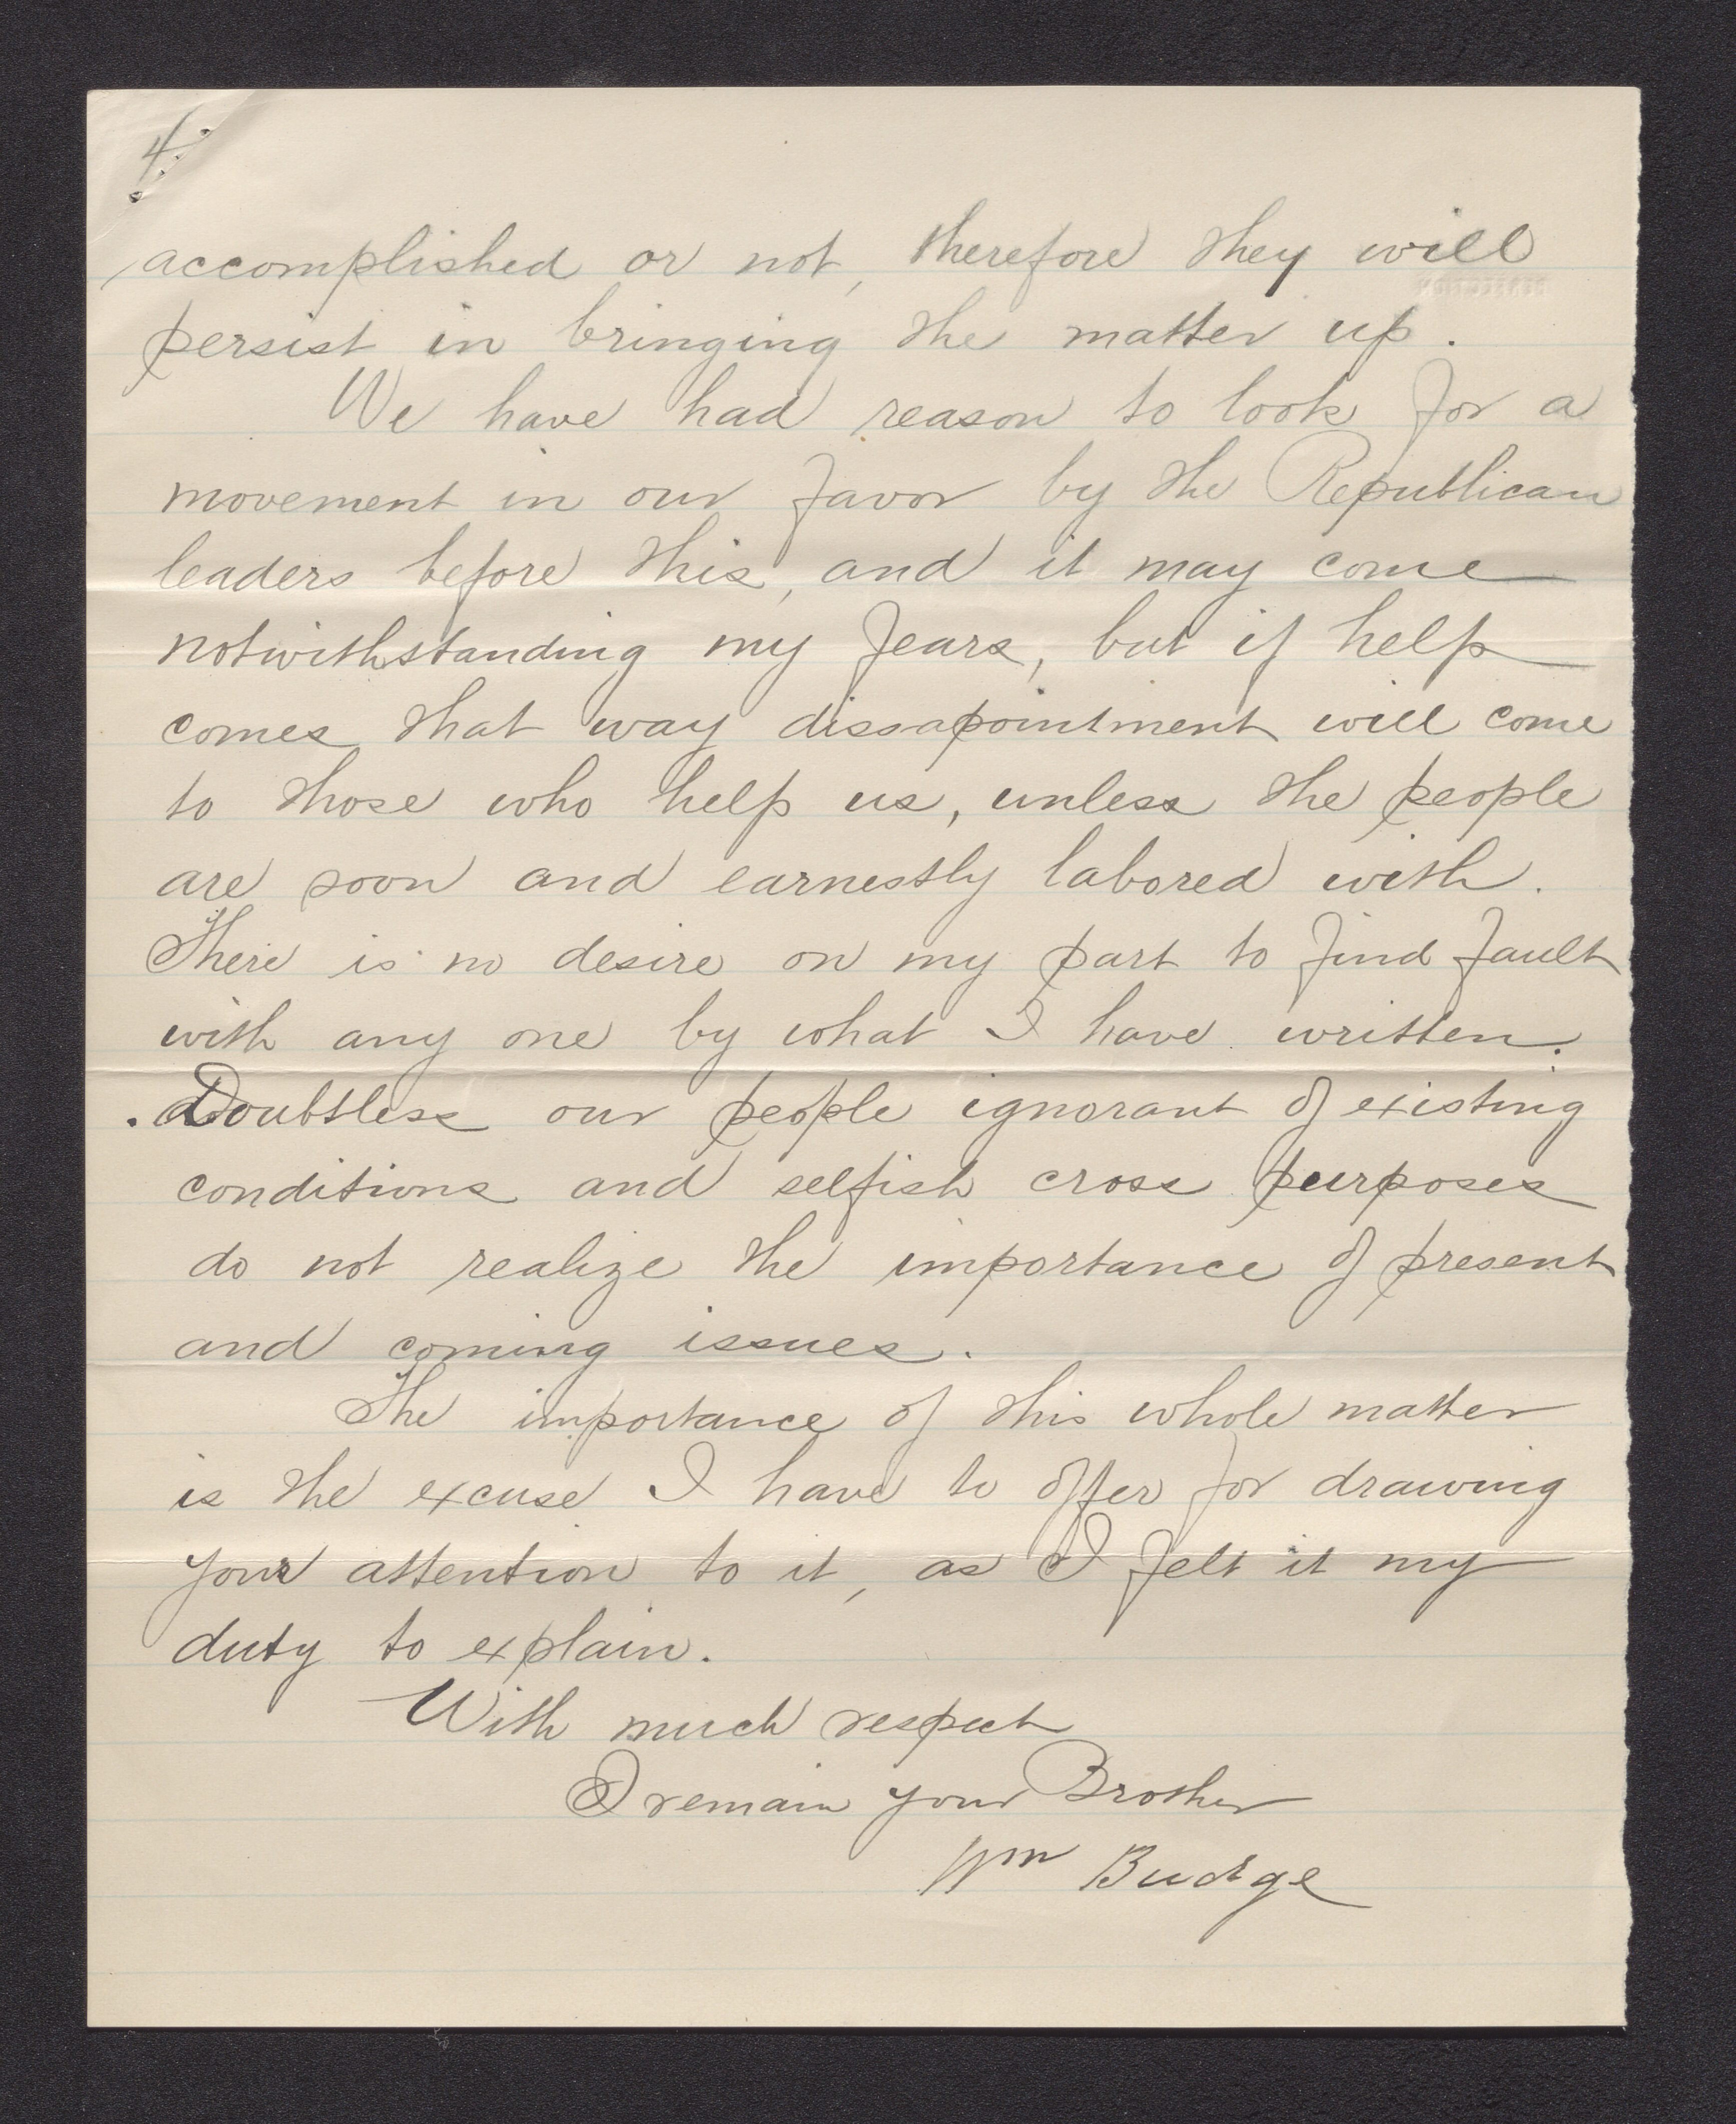 4.
accomplished or not, therefore they will
persist in bringing the matter up.
We have had reason to look for a
movement in our favor by the Republican
leaders before this, and it may come
notwithstanding my fears, but if help
comes that way dissapointment will come
to those who help us, unless the people
are soon and earnestly labored with.
There is no desire on my part to find fault
with any one by what I have written.
Doubtless our people ignorant of existing
conditions and selfish cross purposes
do not realize the importance of present
and coming issues.
The importance of this whole matter
is the excuse I have to offer for drawing
your attention to it, as I felt it my
duty to explain.
With much respect
I remain your Brother
Wm Budge